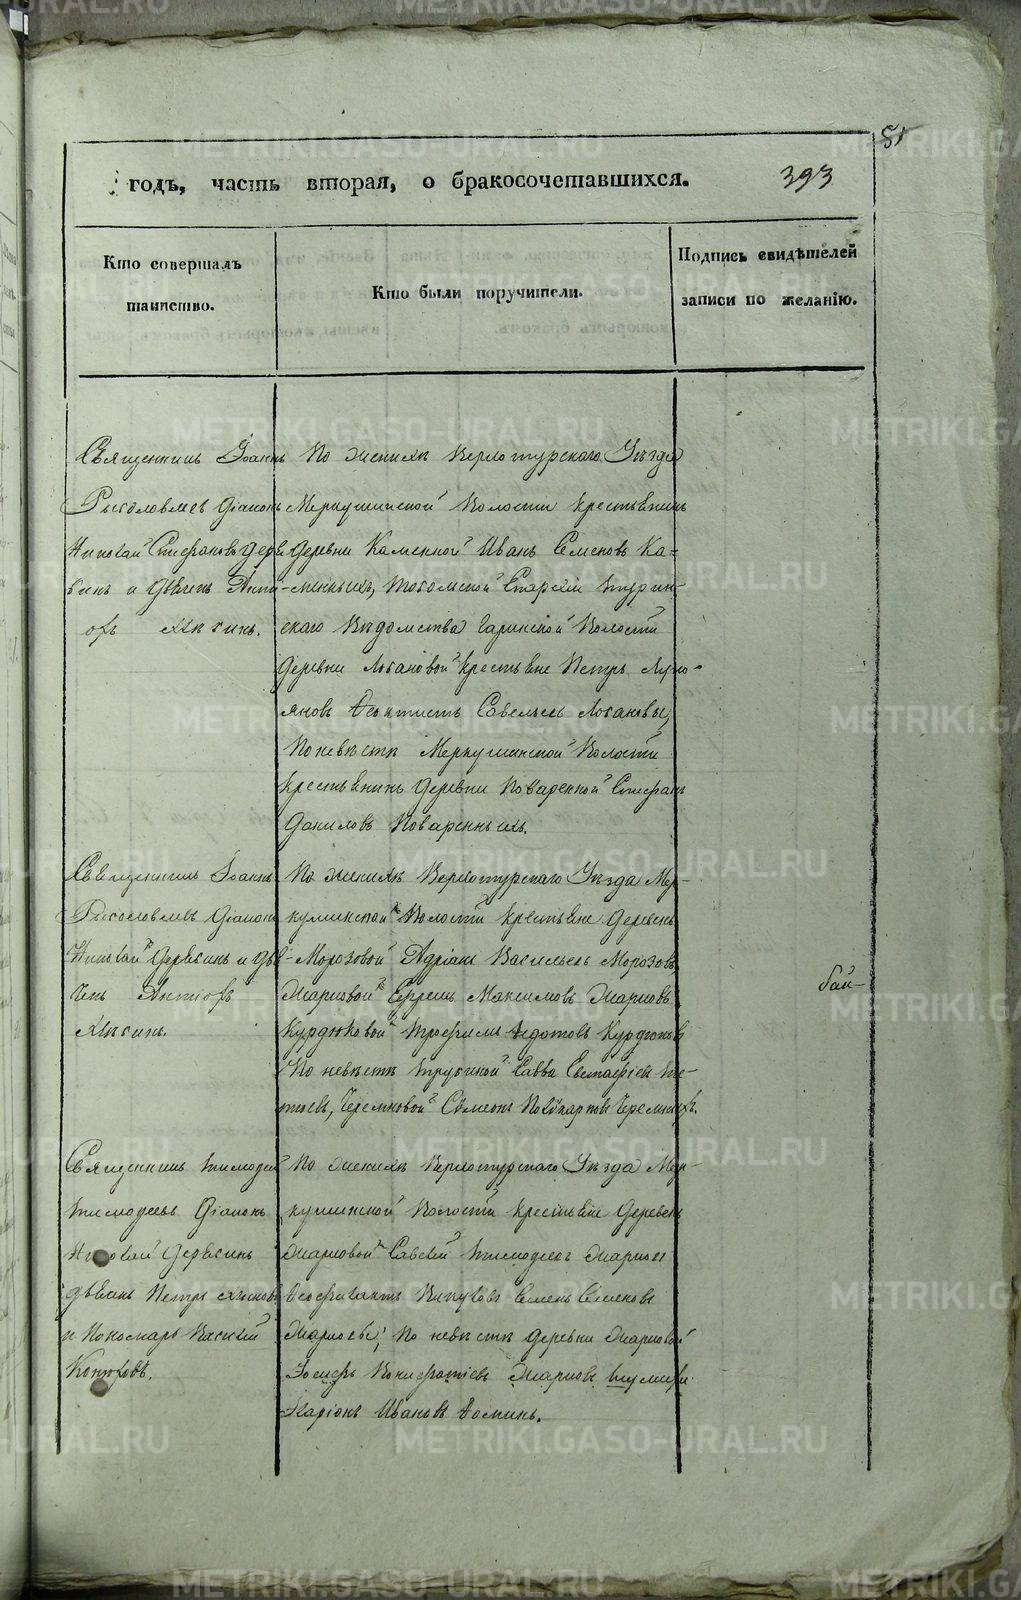 51
годъ, часть вторая, о бракосочетавшихся.
393
Кто совершалъ
таинство.
Кто были поручители.
Подпись свидѣтелей
записи по желанію.
Священникъ Іоаннъ
Діаконъ
Николай Стефановъ Деря
бинъ и Дьячекъ Анти
офъ
По женихѣ Верхотурскаго Уѣзда
Меркушинской Волости крестьянинъ
Деревни Каменной Иванъ Семеновъ Ка=
менныхъ, Тобольской Епархіи Турин-
скаго Вѣдомства Гаринской Волости
Деревни Лобановой крестьяне Петръ Луко-
яновъ Феоктистъ Савельевъ Лобановы,
По невѣстѣ Меркушинской Волости
Крестьянинъ Деревни Поваренной Стефанъ
Даниловъ Поваренныхъ.
Священникъ Іоаннъ
Діаконъ
Николай Дерябинъ и Дья
чекъ Антіофъ
По женихѣ Верхотурскаго Уѣзда Мер-
кушинской Волости крестьяне Деревень
Морозовой Адріанъ Васильевъ Морозовъ
Жарковой Ефремъ Максимовъ Жарковъ
Курдюковой Трофимъ Федотовъ Курдюковъ
По невѣстѣ Савва Евстафіевъ
Семеонъ Поликарповъ
бай-
Священникъ Тимофей
Тимофеевъ Діаконъ
Николай Дерябинъ
Дьячекъ Петръ
и Пономарь Василій
Конюховъ.
По женихѣ Верхотурскаго Уѣзда Мер-
кушинской Волости крестьяне Деревень
Жарковой Савелій Тимофеевъ Жарковъ
Феофилактъ Семенъ Семеновъ
Жарковы, По невѣстѣ Деревни Жарковой
Іосифъ Вонифатіевъ Жарковъ
Иларіонъ Ивановъ Фоминъ.
METRIKI.GASO-URAL.RU